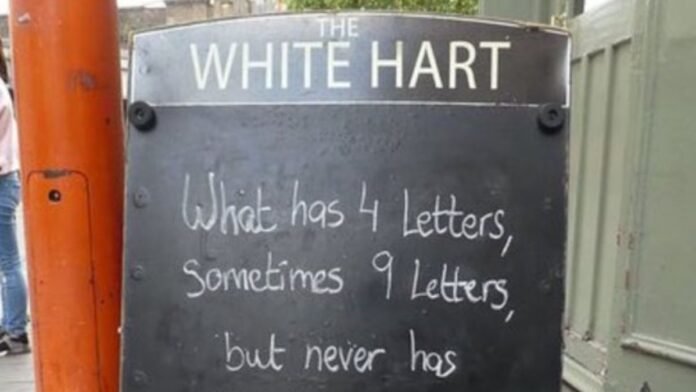 THE
WHITE HART
What has 4 Letters,
Sometimes 9 Letters,
but never has